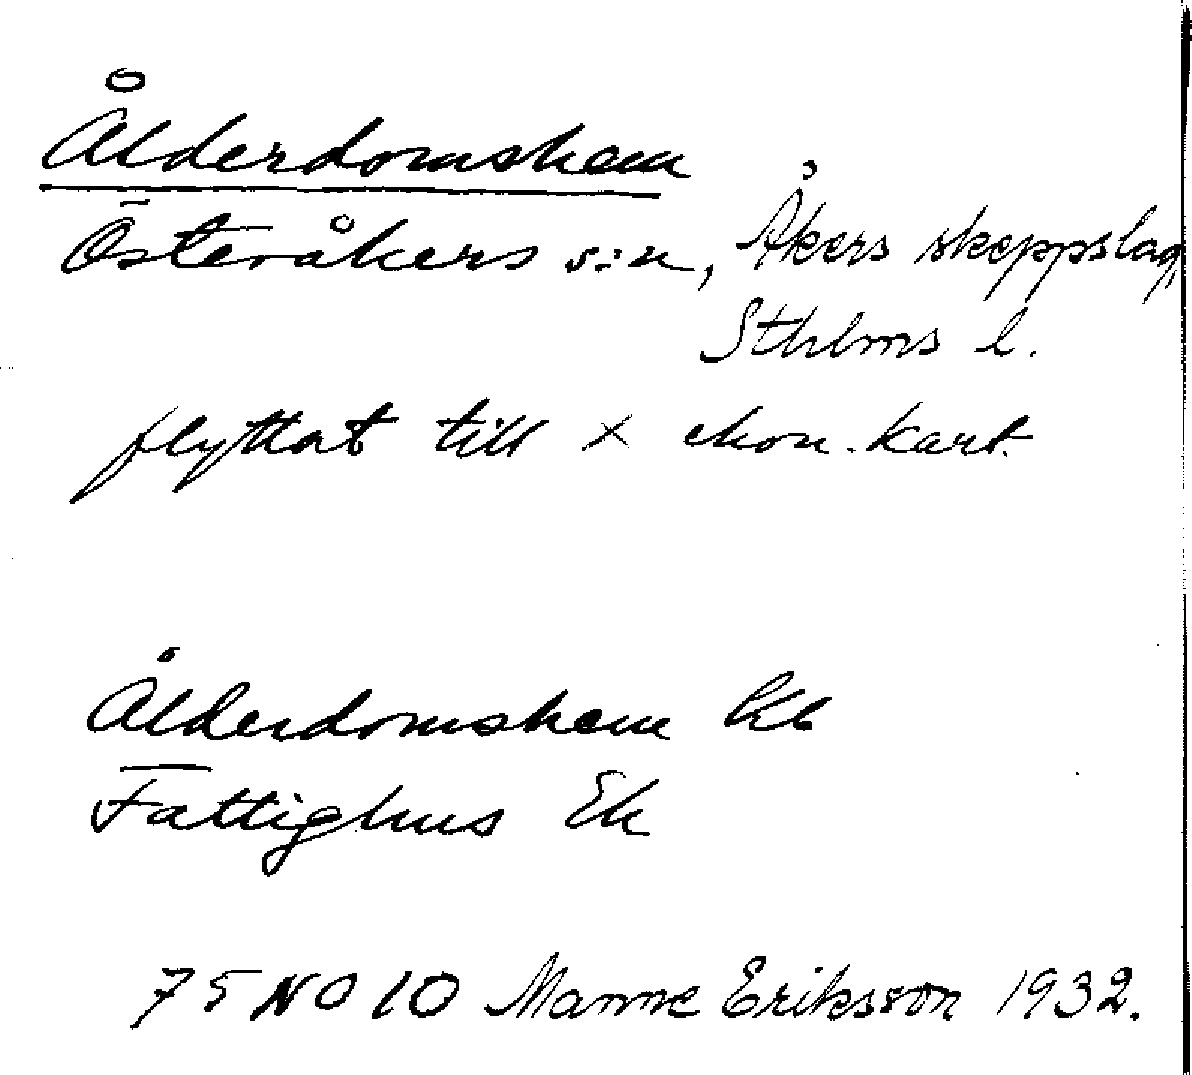 Ålderdomshem
Österåkers s:n, Åkers skeppslag,
Sthlms l.
flyttat till × ekon. kart.
Ålderdomshem Kb
Fattighus Ek
75 NO 10 Manne Eriksson 1932.